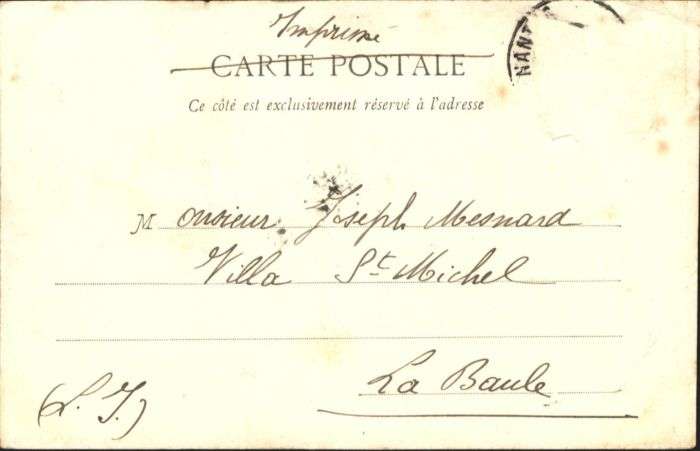 Imprimé
CARTE POSTALE
NAN
Ce côté est exclusivement réservé à l'adresse
Monsieur Joseph Mesnard
Villa St Michel
La Baule
(L. I.)